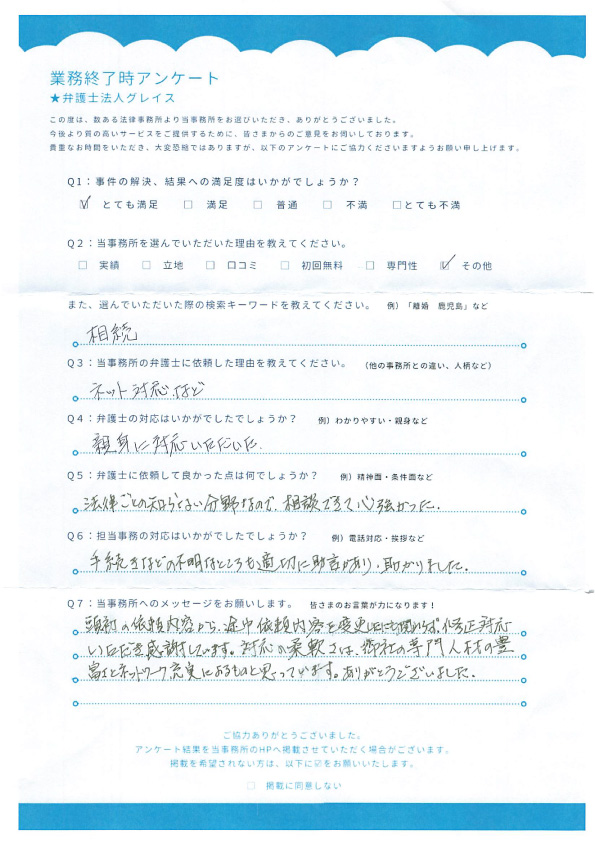 業務終了時アンケート
★弁護士法人グレイス
この度は、数ある法律事務所より当事務所をお選びいただき、ありがとうございました。
今後より質の高いサービスをご提供するために、皆さまからのご意見をお伺いしております。
貴重なお時間をいただき、大変恐縮ではありますが、以下のアンケートにご協力くださいますようお願い申し上げます。
Q1：事件の解決、結果への満足度はいかがでしょうか？
☑ とても満足 □ 満足 □ 普通 □ 不満 □とても不満
Q2：当事務所を選んでいただいた理由を教えてください。
□ 実績 □ 立地 □ 口コミ □ 初回無料 □ 専門性 ☑ その他
また、選んでいただいた際の検索キーワードを教えてください。 例）「離婚 鹿児島」など
相続
Q3：当事務所の弁護士に依頼した理由を教えてください。 （他の事務所との違い、人柄など）
ネット対応など
Q4：弁護士の対応はいかがでしたでしょうか？ 例）わかりやすい・親身など
親身に対応いただいた.
Q5：弁護士に依頼して良かった点は何でしょうか？ 例）精神面・条件面など
法律ごとの知らない分野なので、相談できて心強かった.
Q6：担当事務の対応はいかがでしたでしょうか？ 例）電話対応・挨拶など
手続きなどの不明なところも適切に助言があり、助かりました.
Q7：当事務所へのメッセージをお願いします。 皆さまのお言葉が力になります！
頭初の依頼内容から、途中依頼内容を変更したにも関わらず、修正対応
いただき感謝しています。対応の柔軟さは、御社の専門人材の豊
富さとネットワーク充実によるものと思っています。ありがとうございました.
ご協力ありがとうございました。
アンケート結果を当事務所のHPへ掲載させていただく場合がございます。
掲載を希望されない方は、以下に☑をお願いいたします。
□ 掲載に同意しない